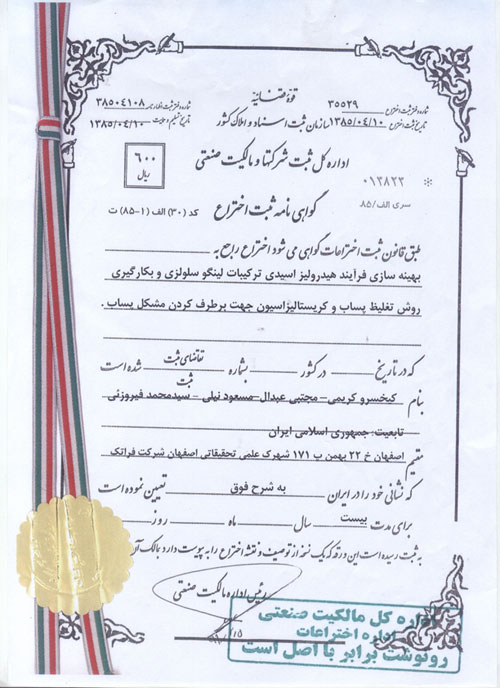 قوه قضائیه
شماره دفتر ثبت اختراع ۳۵۵۲۹
شماره دفتر ثبت اظهارنامه ۳۸۵۰۴۱۰۸
سازمان ثبت اسناد و املاک کشور
تاریخ ثبت اختراع ۱۳۸۵/۰۴/۱۰
تاریخ تسلیم ۱۳۸۵/۰۴/۱۰
اداره کل ثبت شرکتها و مالکیت صنعتی
۶۰۰
ریال
۰۱۳۸۲۲
سری الف/۸۵
گواهی نامه ثبت اختراع
کد (۳۰) الف (۱-۸۵) ت
طبق قانون ثبت اختراعات گواهی می شود اختراع راجع به
بهینه سازی فرآیند هیدرولیز اسیدی ترکیبات لینگو سلولزی و بکارگیری
روش تغلیظ پساب و کریستالیزاسیون جهت برطرف کردن مشکل پساب .
که در تاریخ در کشور بشماره تقاضای ثبت شده است
ثبت
بنام کیخسرو کریمی - مجتبی عبدال - مسعود نیلی - سیدمحمد فیروزئی
تابعیت: جمهوری اسلامی ایران
مقیم اصفهان خ ۲۲ بهمن پ ۱۷۱ شهرک علمی تحقیقاتی اصفهان شرکت فراتک
که نشانی خود را در ایران به شرح فوق تعیین نموده است
برای مدت بیست سال ماه روز
به ثبت رسیده است این ورقه که یک نسخه از توصیف و نقشه اختراع را به پیوست دارد بمالک آن
رئیس اداره مالکیت صنعتی
اداره کل مالکیت صنعتی
اداره اختراعات
رونوشت برابر با اصل است